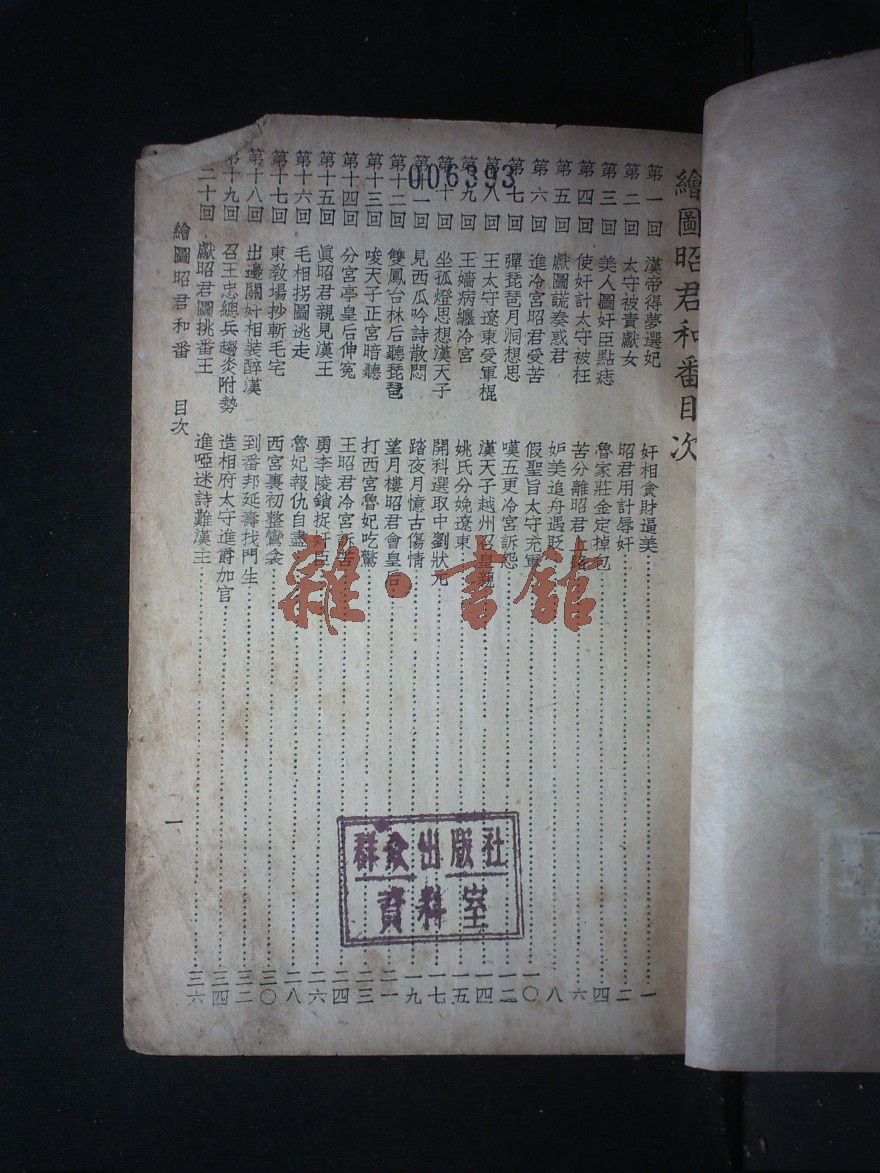 繪圖昭君和番目次
第一回 漢帝得夢選妃 奸相貪財逼美 一
第二回 太守被責獻女 昭君用計辱奸 二
第三回 美人圖奸臣點痣 魯家莊金定掉包 四
第四回 使奸計太守被枉 苦分離昭君上路 六
第五回 獻圖謊奏惑君 妒美追舟遇貶 八
第六回 進冷宮昭君受苦 假聖旨太守充軍 一〇
第七回 彈琵琶月洞想思 嘆五更冷宮訴怨 一二
第八回 王太守遼東受軍棍 漢天子越州召皇親 一四
第九回 王嬙病纏冷宮 姚氏分娩遼東 一五
第十回 坐孤燈思想漢天子 開科選取中劉狀元 一七
第十一回 見西瓜吟詩散悶 踏夜月憶古傷情 一九
第十二回 雙鳳台林后聽琵琶 望月樓昭君會皇后 二一
第十三回 唆天子正宮暗聽 打西宮魯妃吃驚 二三
第十四回 分宮亭皇后伸寃 王昭君冷宮訴苦 二四
第十五回 眞昭君親見漢王 勇李陵鎖捉奸臣 二六
第十六回 毛相拐圖逃走 魯妃報仇自盡 二八
第十七回 東敎場抄斬毛宅 西宮裏初整鸞衾 三〇
第十八回 出邊關奸相裝醉漢 到番邦延壽找門生 三二
第十九回 召王忠總兵趨炎附勢 造相府太守進爵加官 三四
第二十回 獻昭君圖挑番王 進啞迷詩難漢主 三六
繪圖昭君和番 目次 一
006393
雜·書館
群众出版社
資料室